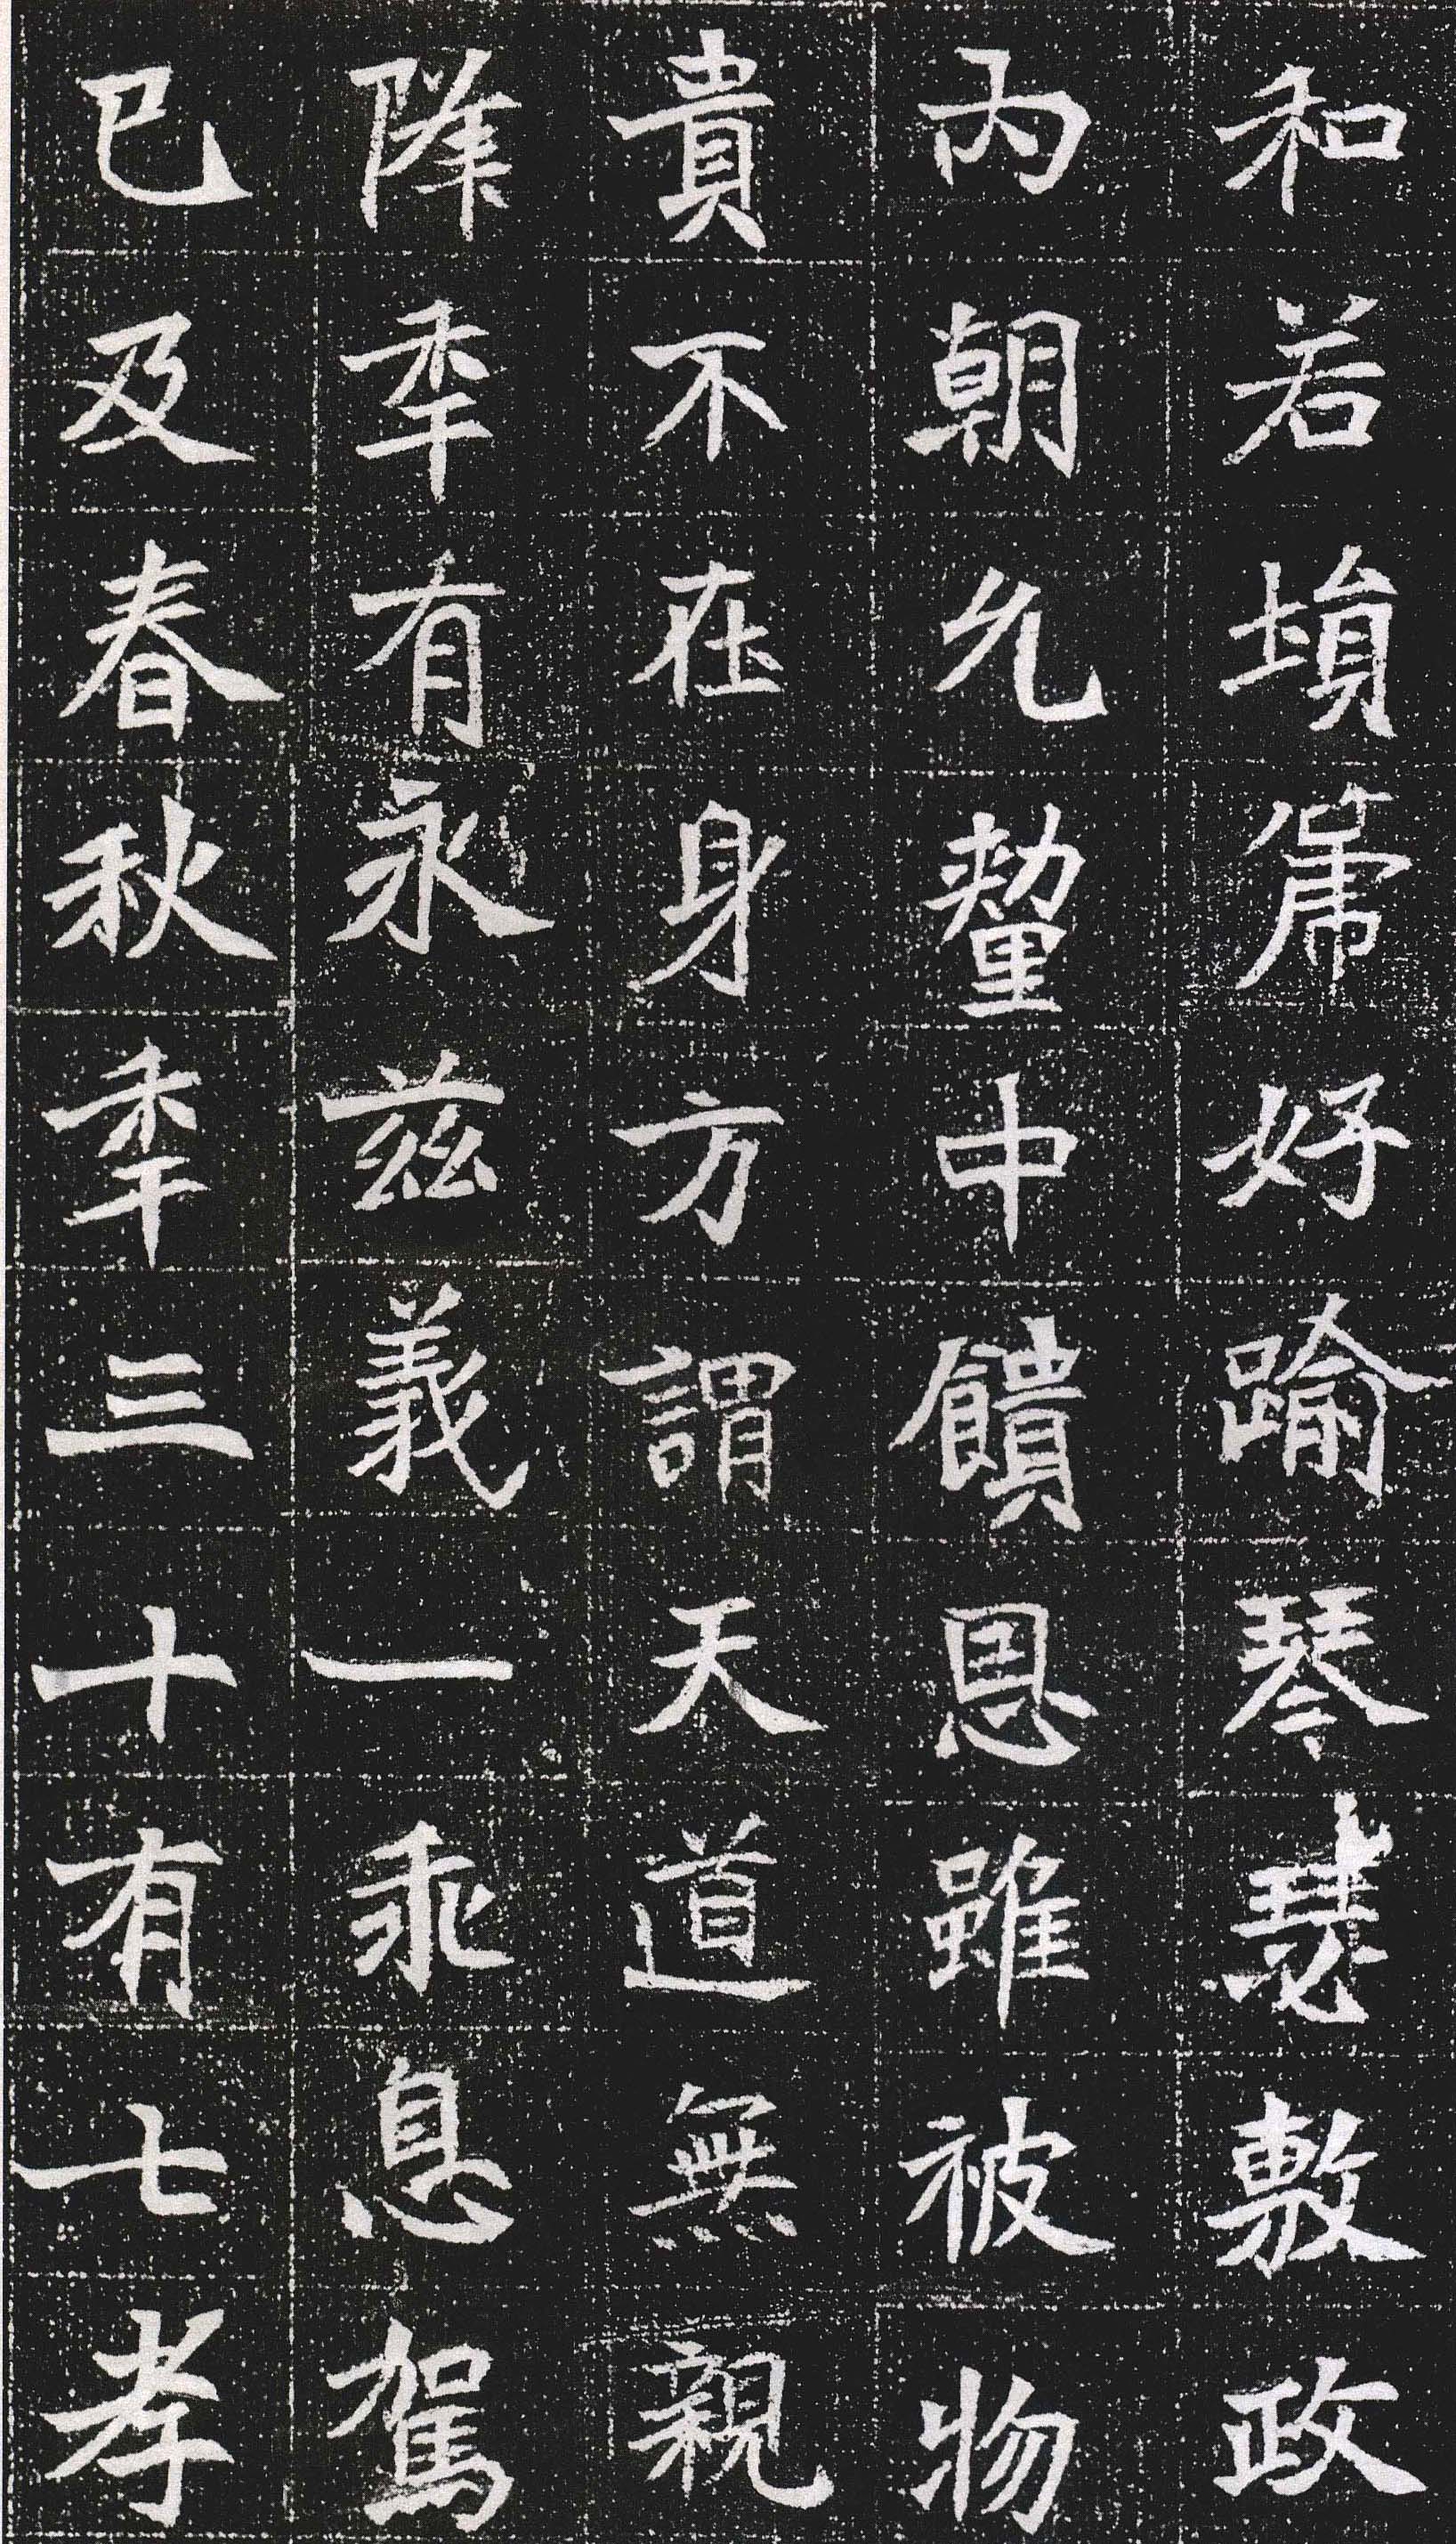 和若塤篪好踰琴瑟敷政
內朝允釐中饋恩雖被物
貴不在身方謂天道無親
降秊有永茲義一乖息駕
已及春秋秊三十有七孝